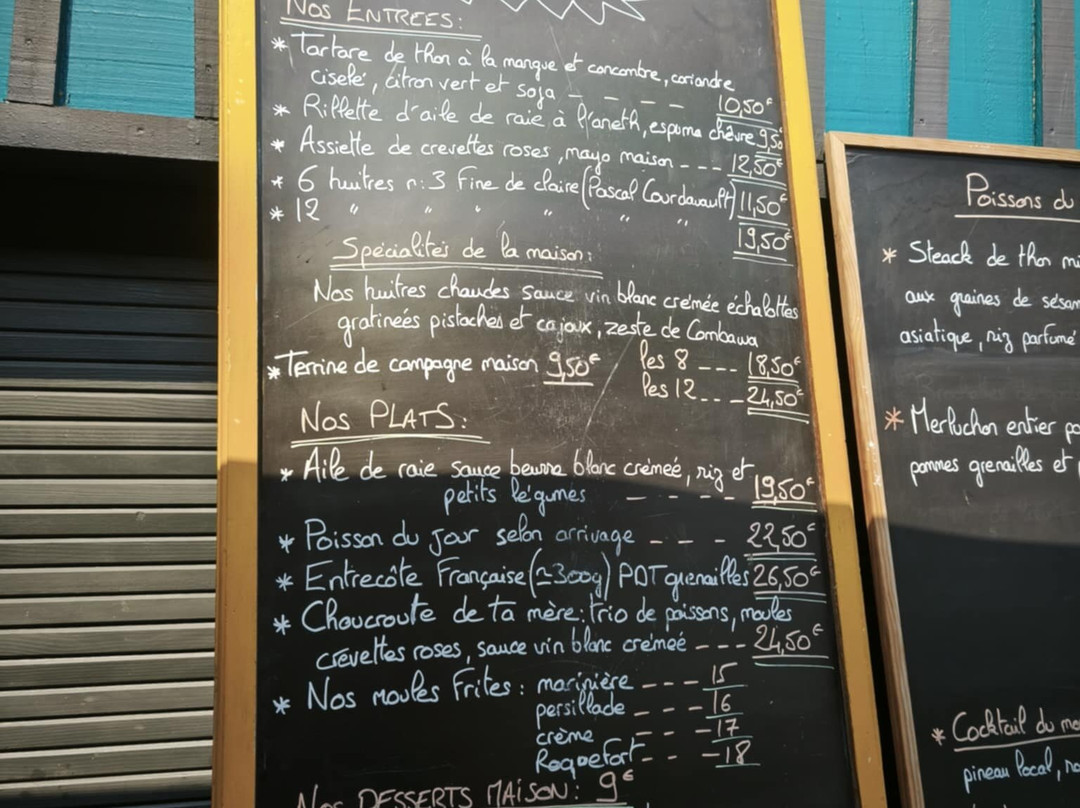 NOS ENTREES:
* Tartare de thon à la mangue et concombre, coriandre
ciselé, citron vert et soja - - - - 10,50€
* Rillette d'aile de raie à l'aneth, espuma chèvre 9,50
* Assiette de crevettes roses, mayo maison - - 12,50€
* 6 huitres n:3 Fine de claire (Pascal Courdavault) 11,50€
* 12 " " " " " " 19,50€
Spécialités de la maison:
Nos huitres chaudes sauce vin blanc crémée échalottes
gratineés pistaches et cajoux, zeste de Combawa
* Terrine de campagne maison 9,50€ les 8 - - - 18,50€
les 12 - - - 24,50€
NOS PLATS:
* Aile de raie sauce beurre blanc crémeé, riz et
petits légumes - - - - 19,50€
* Poisson du jour selon arrivage - - - 22,50€
* Entrecôte Française (≃300g) PDT grenailles 26,50€
* Choucroute de ta mère: trio de poissons, moules
crevettes roses, sauce vin blanc crémeé - - - 24,50€
* Nos moules Frites: marinière - - - 15
persillade - - - 16
crème - - - 17
Roquefort - - - 18
NOS DESSERTS MAISON: 9€
Poissons du
* Steack de thon mi
aux graines de sésam
asiatique, riz parfumé
* Merluchon entier po
pommes grenailles et
* Cocktail du mo
pineau local,